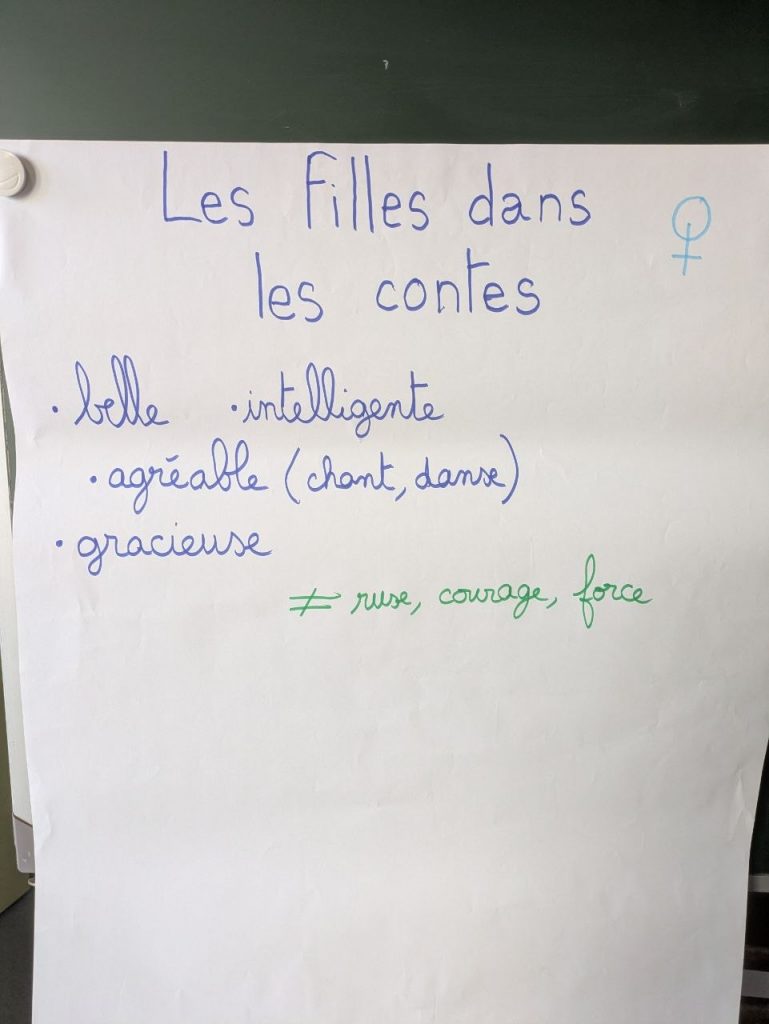 Les filles dans
les contes
• belle • intelligente
• agréable (chant, danse)
• gracieuse
≠ ruse, courage, force